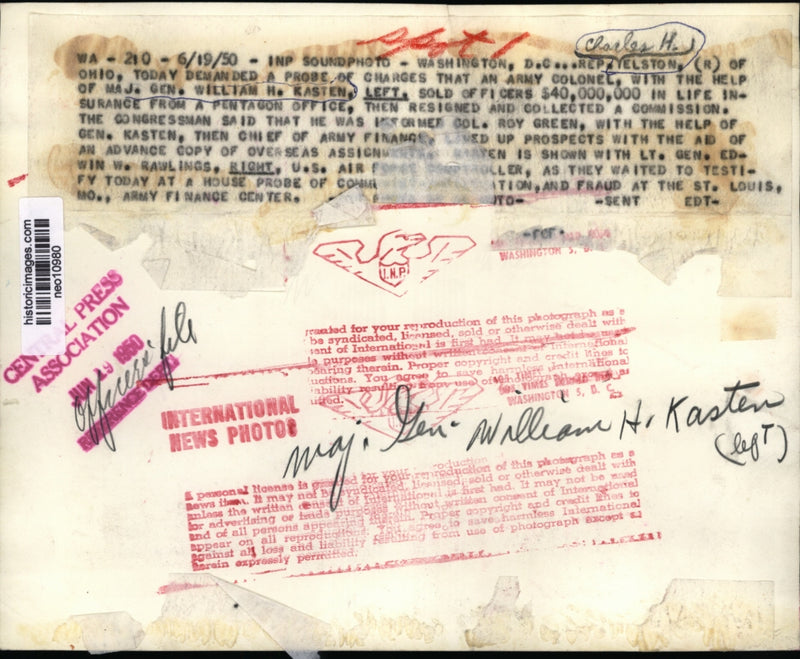 Sept 1
Charles H.
WA - 210 - 6/19/50 - INP SOUNDPHOTO - WASHINGTON, D.C...REP. ELSTON, (R) OF
OHIO, TODAY DEMANDED A PROBE OF CHARGES THAT AN ARMY COLONEL, WITH THE HELP
OF MAJ. GEN. WILLIAM H. KASTEN, LEFT, SOLD OFFICERS $40,000,000 IN LIFE IN-
SURANCE FROM A PENTAGON OFFICE, THEN RESIGNED AND COLLECTED A COMMISSION.
THE CONGRESSMAN SAID THAT HE WAS INFORMED COL. ROY GREEN, WITH THE HELP OF
GEN. KASTEN, THEN CHIEF OF ARMY FINANC ED UP PROSPECTS WITH THE AID OF
AN ADVANCE COPY OF OVERSEAS ASSIGN EN IS SHOWN WITH LT. GEN. ED-
WIN W. RAWLINGS, RIGHT, U.S. AIR LLER, AS THEY WAITED TO TESTI-
FY TODAY AT A HOUSE PROBE OF COMM ATION, AND FRAUD AT THE ST. LOUIS,
MO., ARMY FINANCE CENTER. UTO- -SENT EDT-
-PCF-
WASHINGTON 5, D.
I.N.P.
historicimages.com
neo10980
CENTRAL PRESS
ASSOCIATION
1950
REFERENCE DEPT.
Officers file
reated for your reproduction of this photograph as a
be syndicated, licensed, sold or otherwise dealt with
ent of International is first had. It may not be used
e purposes without written consent of International
earing therein. Proper copyright and credit lines to
uctions. You agree to save harmless International
iability resulting from use of photograph
itted.
TIMES
WASHINGTON 5, D. C.
INTERNATIONAL
NEWS PHOTOS
Maj. Gen. William H. Kasten
(left)
A personal license is granted for your reproduction of this photograph as a
news item. It may not be syndicated, licensed, sold or otherwise dealt with
unless the written consent of International is first had. It may not be used
for advertising or trade purposes without written consent of International
and of all persons appearing therein. Proper copyright and credit lines to
appear on all reproductions. You agree to save harmless International
against all loss and liability resulting from use of photograph except as
herein expressly permitted.